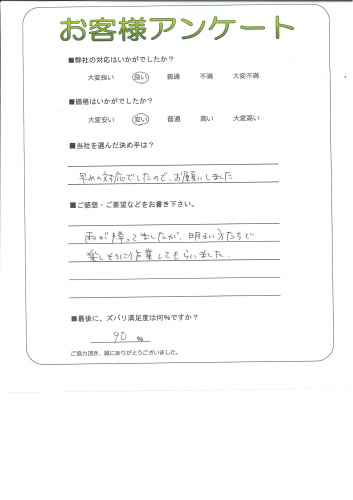 お客様アンケート
■弊社の対応はいかがでしたか?
大変良い 良い 普通 不満 大変不満
■価格はいかがでしたか?
大変安い 安い 普通 高い 大変高い
■当社を選んだ決め手は?
早めの対応でしたので、お願いしました
■ご感想・ご要望などをお書き下さい。
雨が降ってましたが、明るい方たちで
楽しそうに作業してもらいました。
■最後に、ズバリ満足度は何%ですか?
90 %
ご協力頂き、誠にありがとうございました。